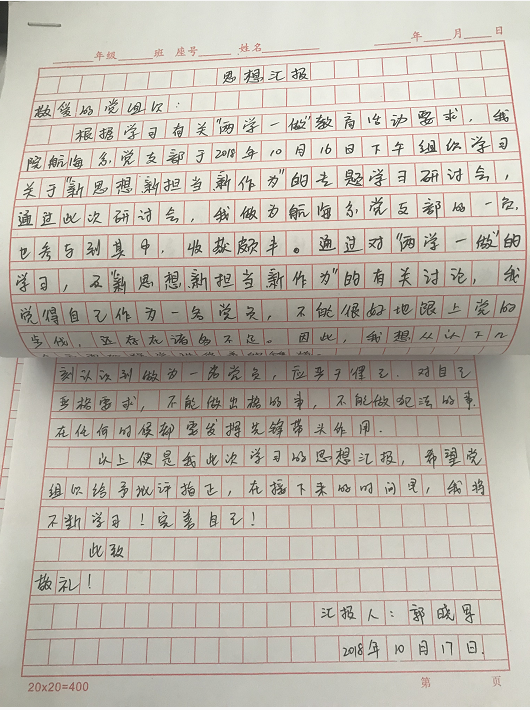 年级 班 座号 姓名 年 月 日
思想汇报
敬爱的党组织:
根据学习有关"两学一做"教育活动要求,我
院航海系党支部于2018年10月16日下午组织学习
关于"新思想新担当新作为"的专题学习研讨会,
通过此次研讨会,我做为航海系党支部的一员,
也参与到其中,收获颇丰。通过对"两学一做"的
学习,及"新思想新担当新作为"的有关讨论,我
觉得自己作为一名党员,不能很好地跟上党的
步伐,还存在诸多不足。因此,我想从以下几
刻认识到做为一名党员,应当于律己.对自己
严格要求,不能做出格的事,不能做犯法的事.
在任何的候都要发挥先锋带头作用.
以上便是我此次学习的思想汇报,希望党
组织给予批评指正,在接下来的时间里,我将
不断学习!完善自己!
此致
敬礼!
汇报人:郭晓男
2018年10月17日.
20x20=400 第 页